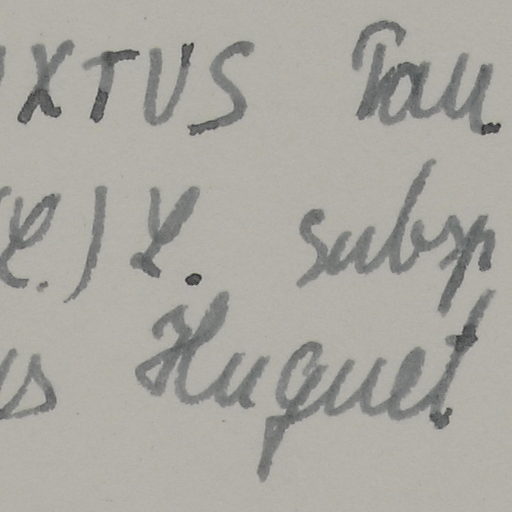 IXTUS Tau
(L.) L. subsp
us Huguet